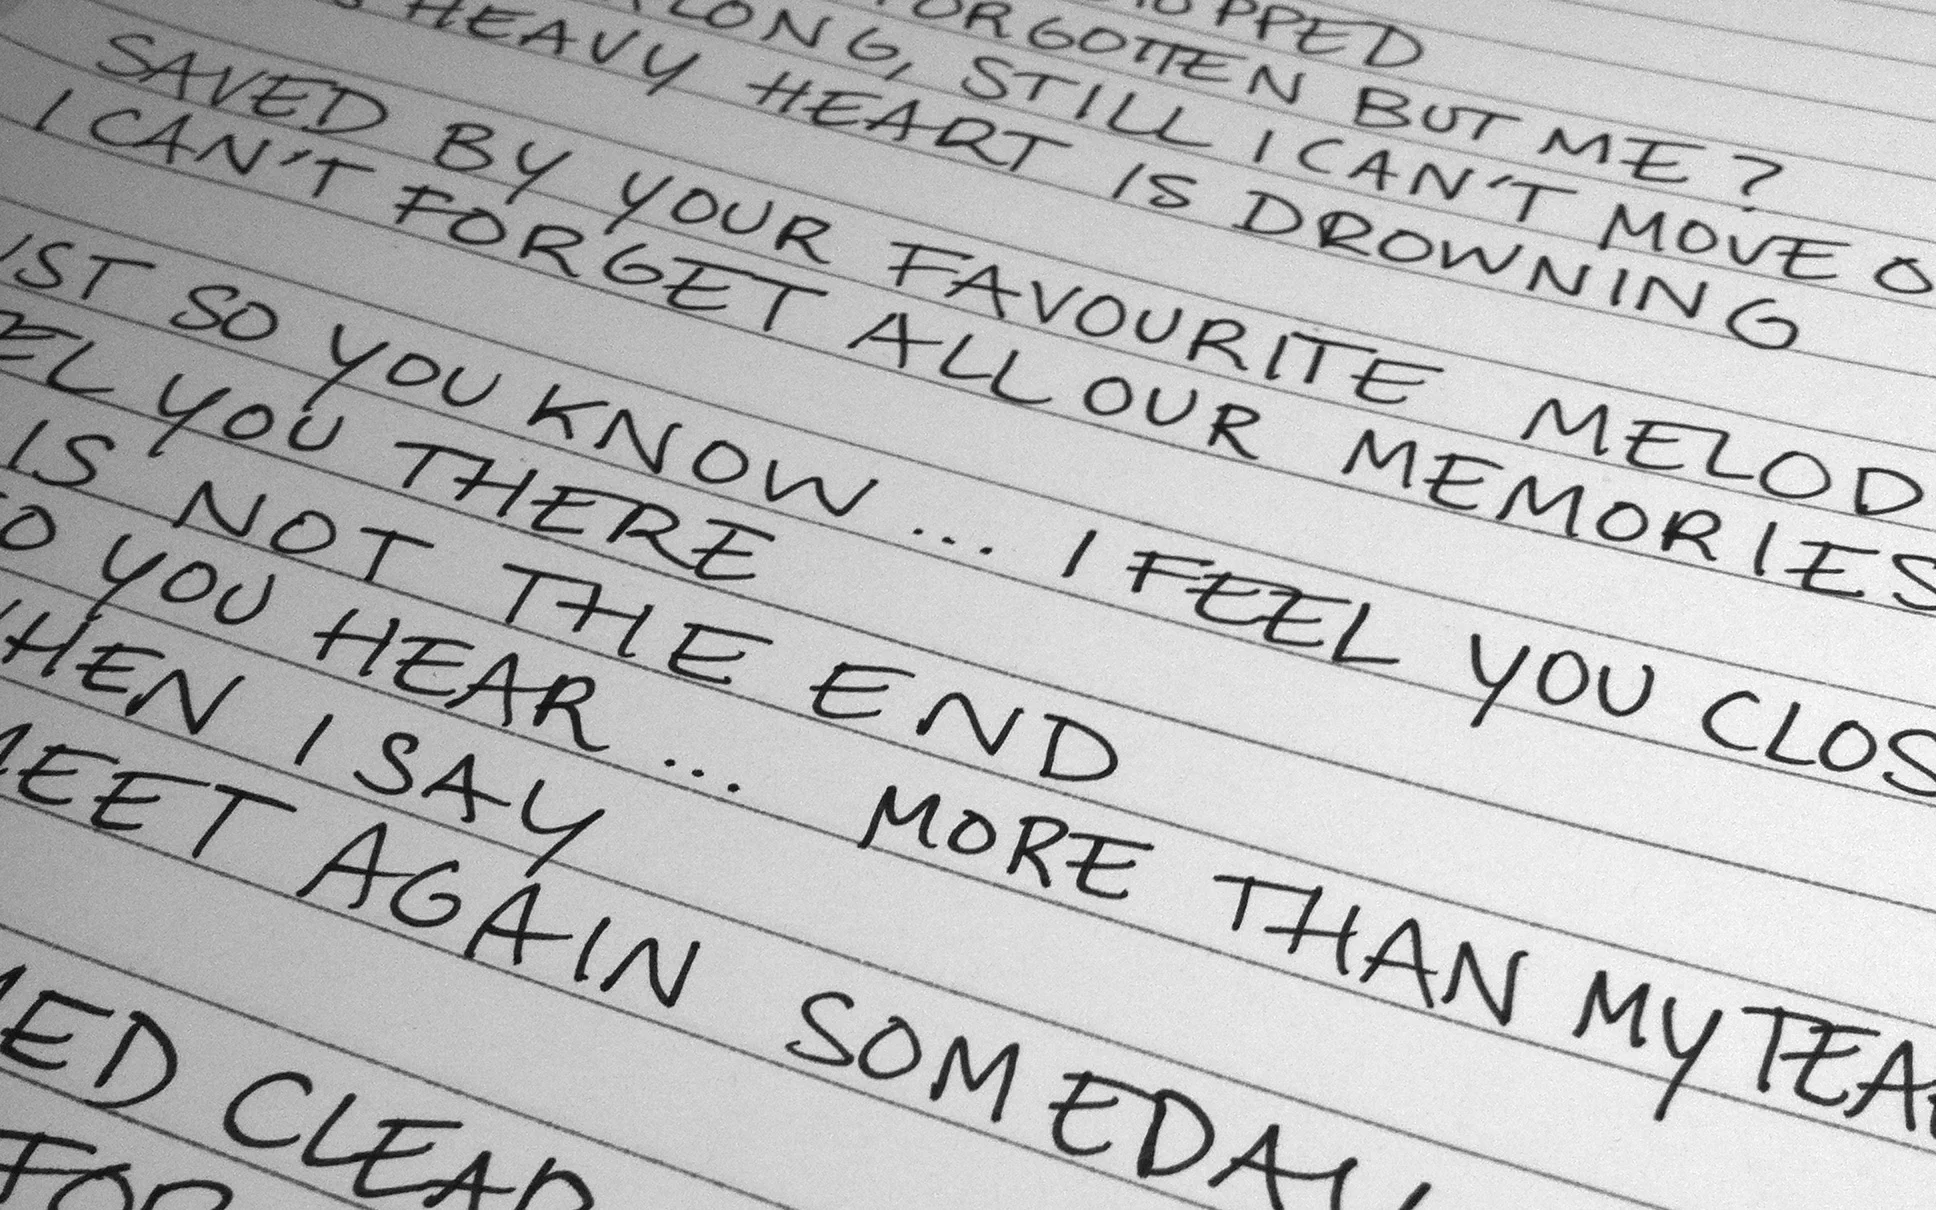 OPPED
FORGOTTEN BUT ME?
LONG, STILL I CAN'T MOVE O
HEAVY HEART IS DROWNING
SAVED BY YOUR FAVOURITE MELOD
I CAN'T FORGET ALL OUR MEMORIES
UST SO YOU KNOW ... I FEEL YOU CLOS
EL YOU THERE
IS NOT THE END
O YOU HEAR ... MORE THAN MY TEA
HEN I SAY
MEET AGAIN SOMEDAY
ED CLEAR
FOR